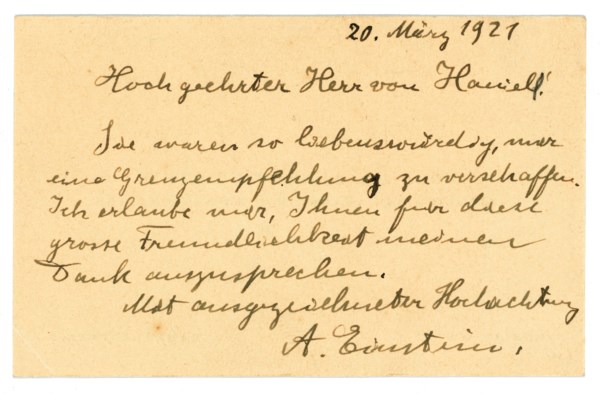 20. März 1921
Hochgeehrter Herr von Haniell!
Sie waren so liebenswürdig, mir
eine Grenzempfehlung zu verschaffen.
Ich erlaube mir, Ihnen für diese
grosse Freundlichkeit meinen
Dank auszusprechen.
Mit ausgezeichneter Hochachtung
A. Einstein.